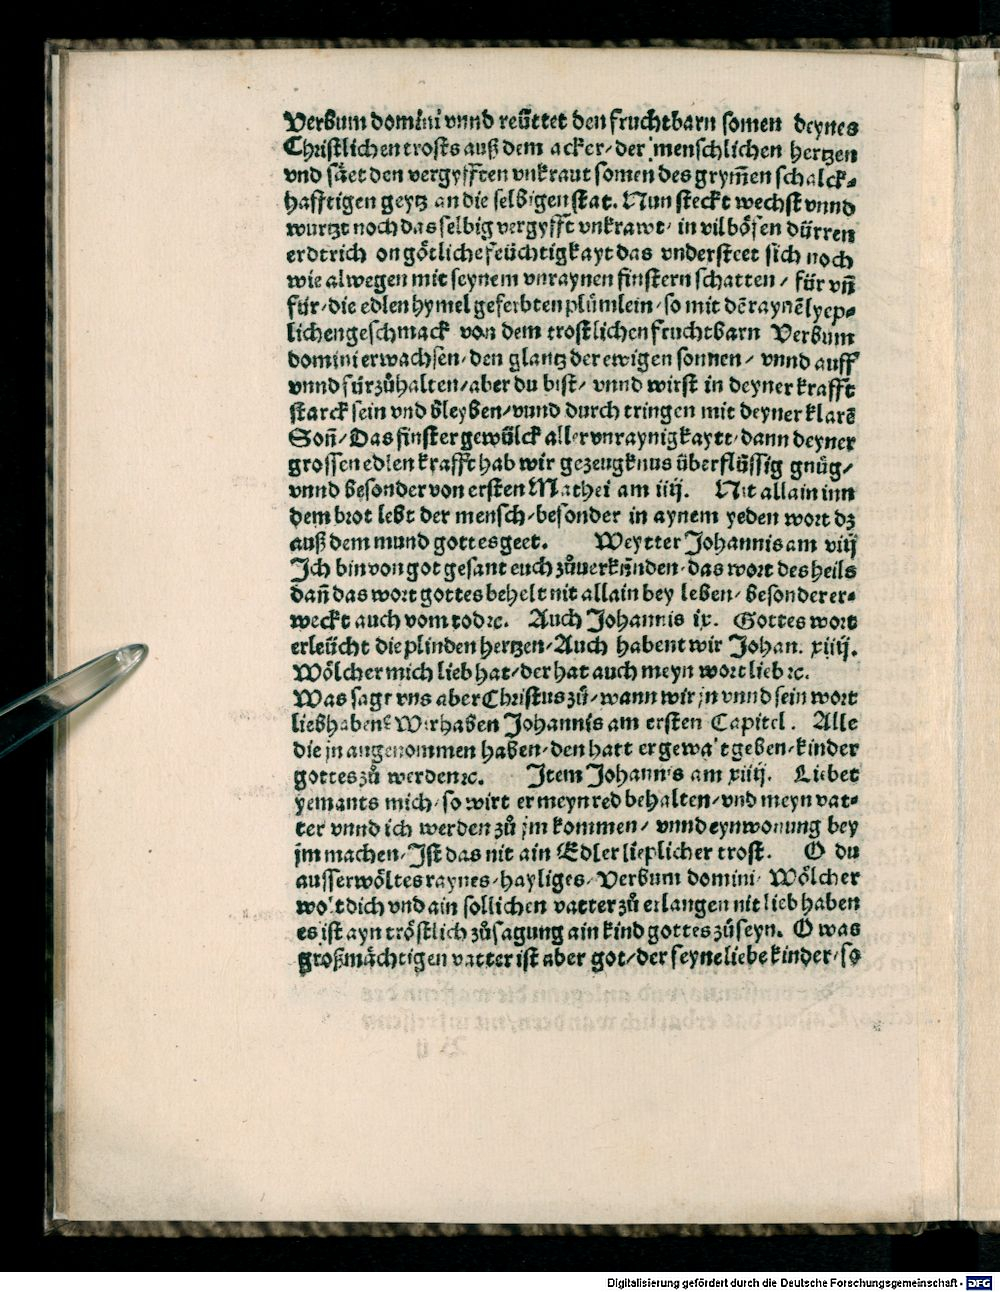 Verbum domini vnnd reüttet den fruchtbarn somen deynes
Christlichen trosts auß dem acker / der menschlichen hertzen
vnd säet den vergyfften vnkraut somen des grym̃en schalck⸗
hafftigen geytz an die selbigen stat. Nun steckt wechst vnnd
wurtzt noch das selbig vergyfft vnkrawt / in vil bösen dürren
erdtrich on götliche feüchtigkayt das vndersteet sich noch
wie alwegen mit seynem vnraynen finstern schatten / für vñ
für / die edlen hymel geferbten plümlein / so mit dē raynē lyep⸗
lichen geschmack von dem trostlichen fruchtbarn Verbum
domini erwachsen / den glantz der ewigen sonnen / vnnd auff
vnnd fürzůhalten / aber du bist / vnnd wirst in deyner krafft
starck sein vnd bleyben / vnnd durch tringen mit deyner klarē
Soñ / Das finster gewülck aller vnraynigkaytt / dann deyner
grossen edlen krafft hab wir gezeugknus überflüssig gnüg /
vnnd besonder von ersten Mathei am iiij. Nit allain inn
dem brot lebt der mensch / besonder in aynem yeden wort dz
auß dem mund gottes geet. Weytter Johannis am viij
Ich bin von got gesant euch zůuerkünden / das wort des heils
dañ das wort gottes behelt nit allain bey leben / besonder er⸗
weckt auch vom tod ꝛc. Auch Johannis ix. Gottes wort
erleücht die plinden hertzen / Auch habent wir Johan. xiiij.
Wölcher mich lieb hat / der hat auch meyn wort lieb ꝛc.
Was sagt vns aber Christus zů / wann wir jn vnnd sein wort
liebhaben? Wir haben Johannis am ersten Capitel. Alle
die jn angenommen haben / den hatt er gewalt geben / kinder
gottes zů werden ꝛc. Item Johannis am xiiij. Liebet
yemants mich / so wirt er meyn red behalten / vnd meyn vat⸗
ter vnnd ich werden zů jm kommen / vnnd eynwonung bey
jm machen / Ist das nit ain Edler lieplicher trost. O du
ausserwöltes raynes / hayliges / Verbum domini / Wölcher
wolt dich vnd ain sollichen vatter zů erlangen nit lieb haben
es ist ayn tröstlich zůsagung ain kind gottes zůseyn. O was
großmächtigen vatter ist aber got / der seyne liebe kinder / so
Digitalisierung gefördert durch die Deutsche Forschungsgemeinschaft - DFG